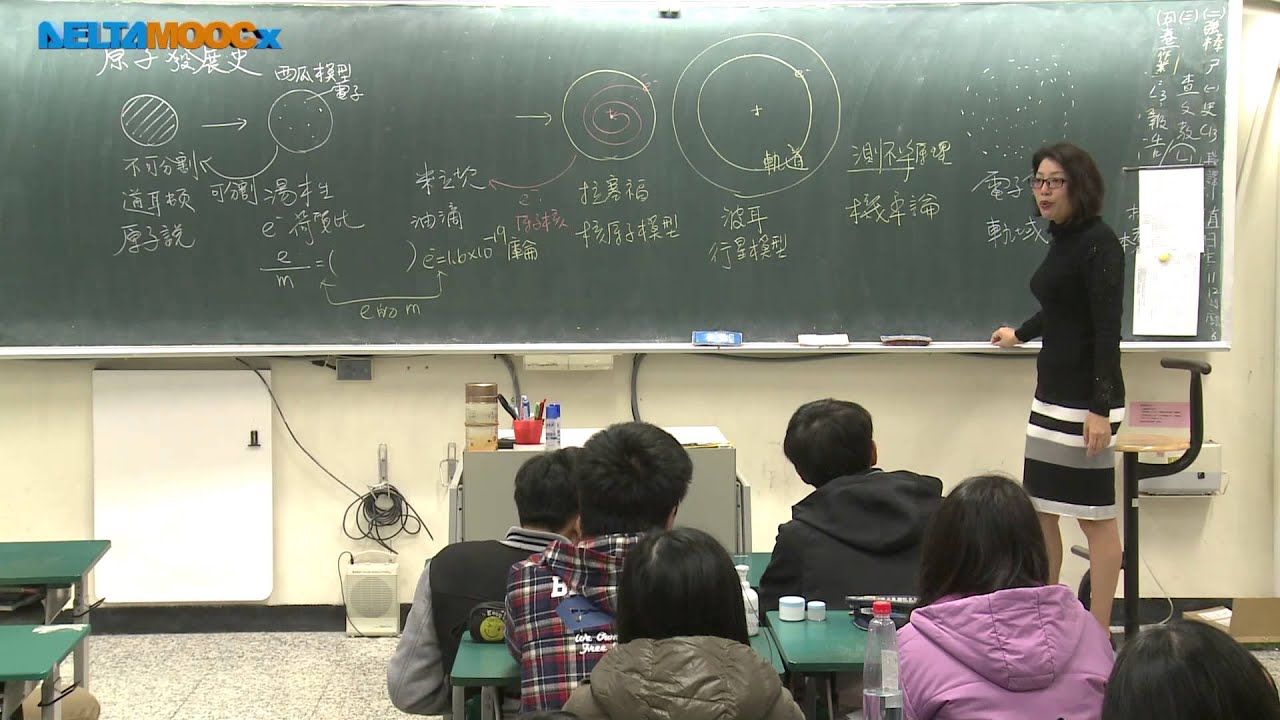 DELTAMOOCx
原子發展史
西瓜模型
電子
不可分割
道耳頓
原子說
可分割
湯木生
e⁻荷質比
e/m = ( )
e的 m
米立坎
油滴
e⁻=1.6×10⁻¹⁹庫侖
e⁻
原子核
拉塞福
核原子模型
e⁻
軌道
波耳
行星模型
測不準原理
機率論
電子
軌域